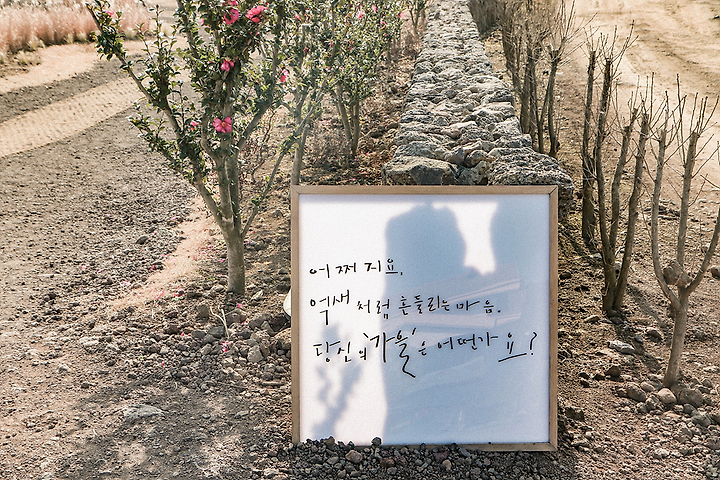 어쩌지요.
억새처럼 흔들리는 마음.
당신의 '가을'은 어떤가요?